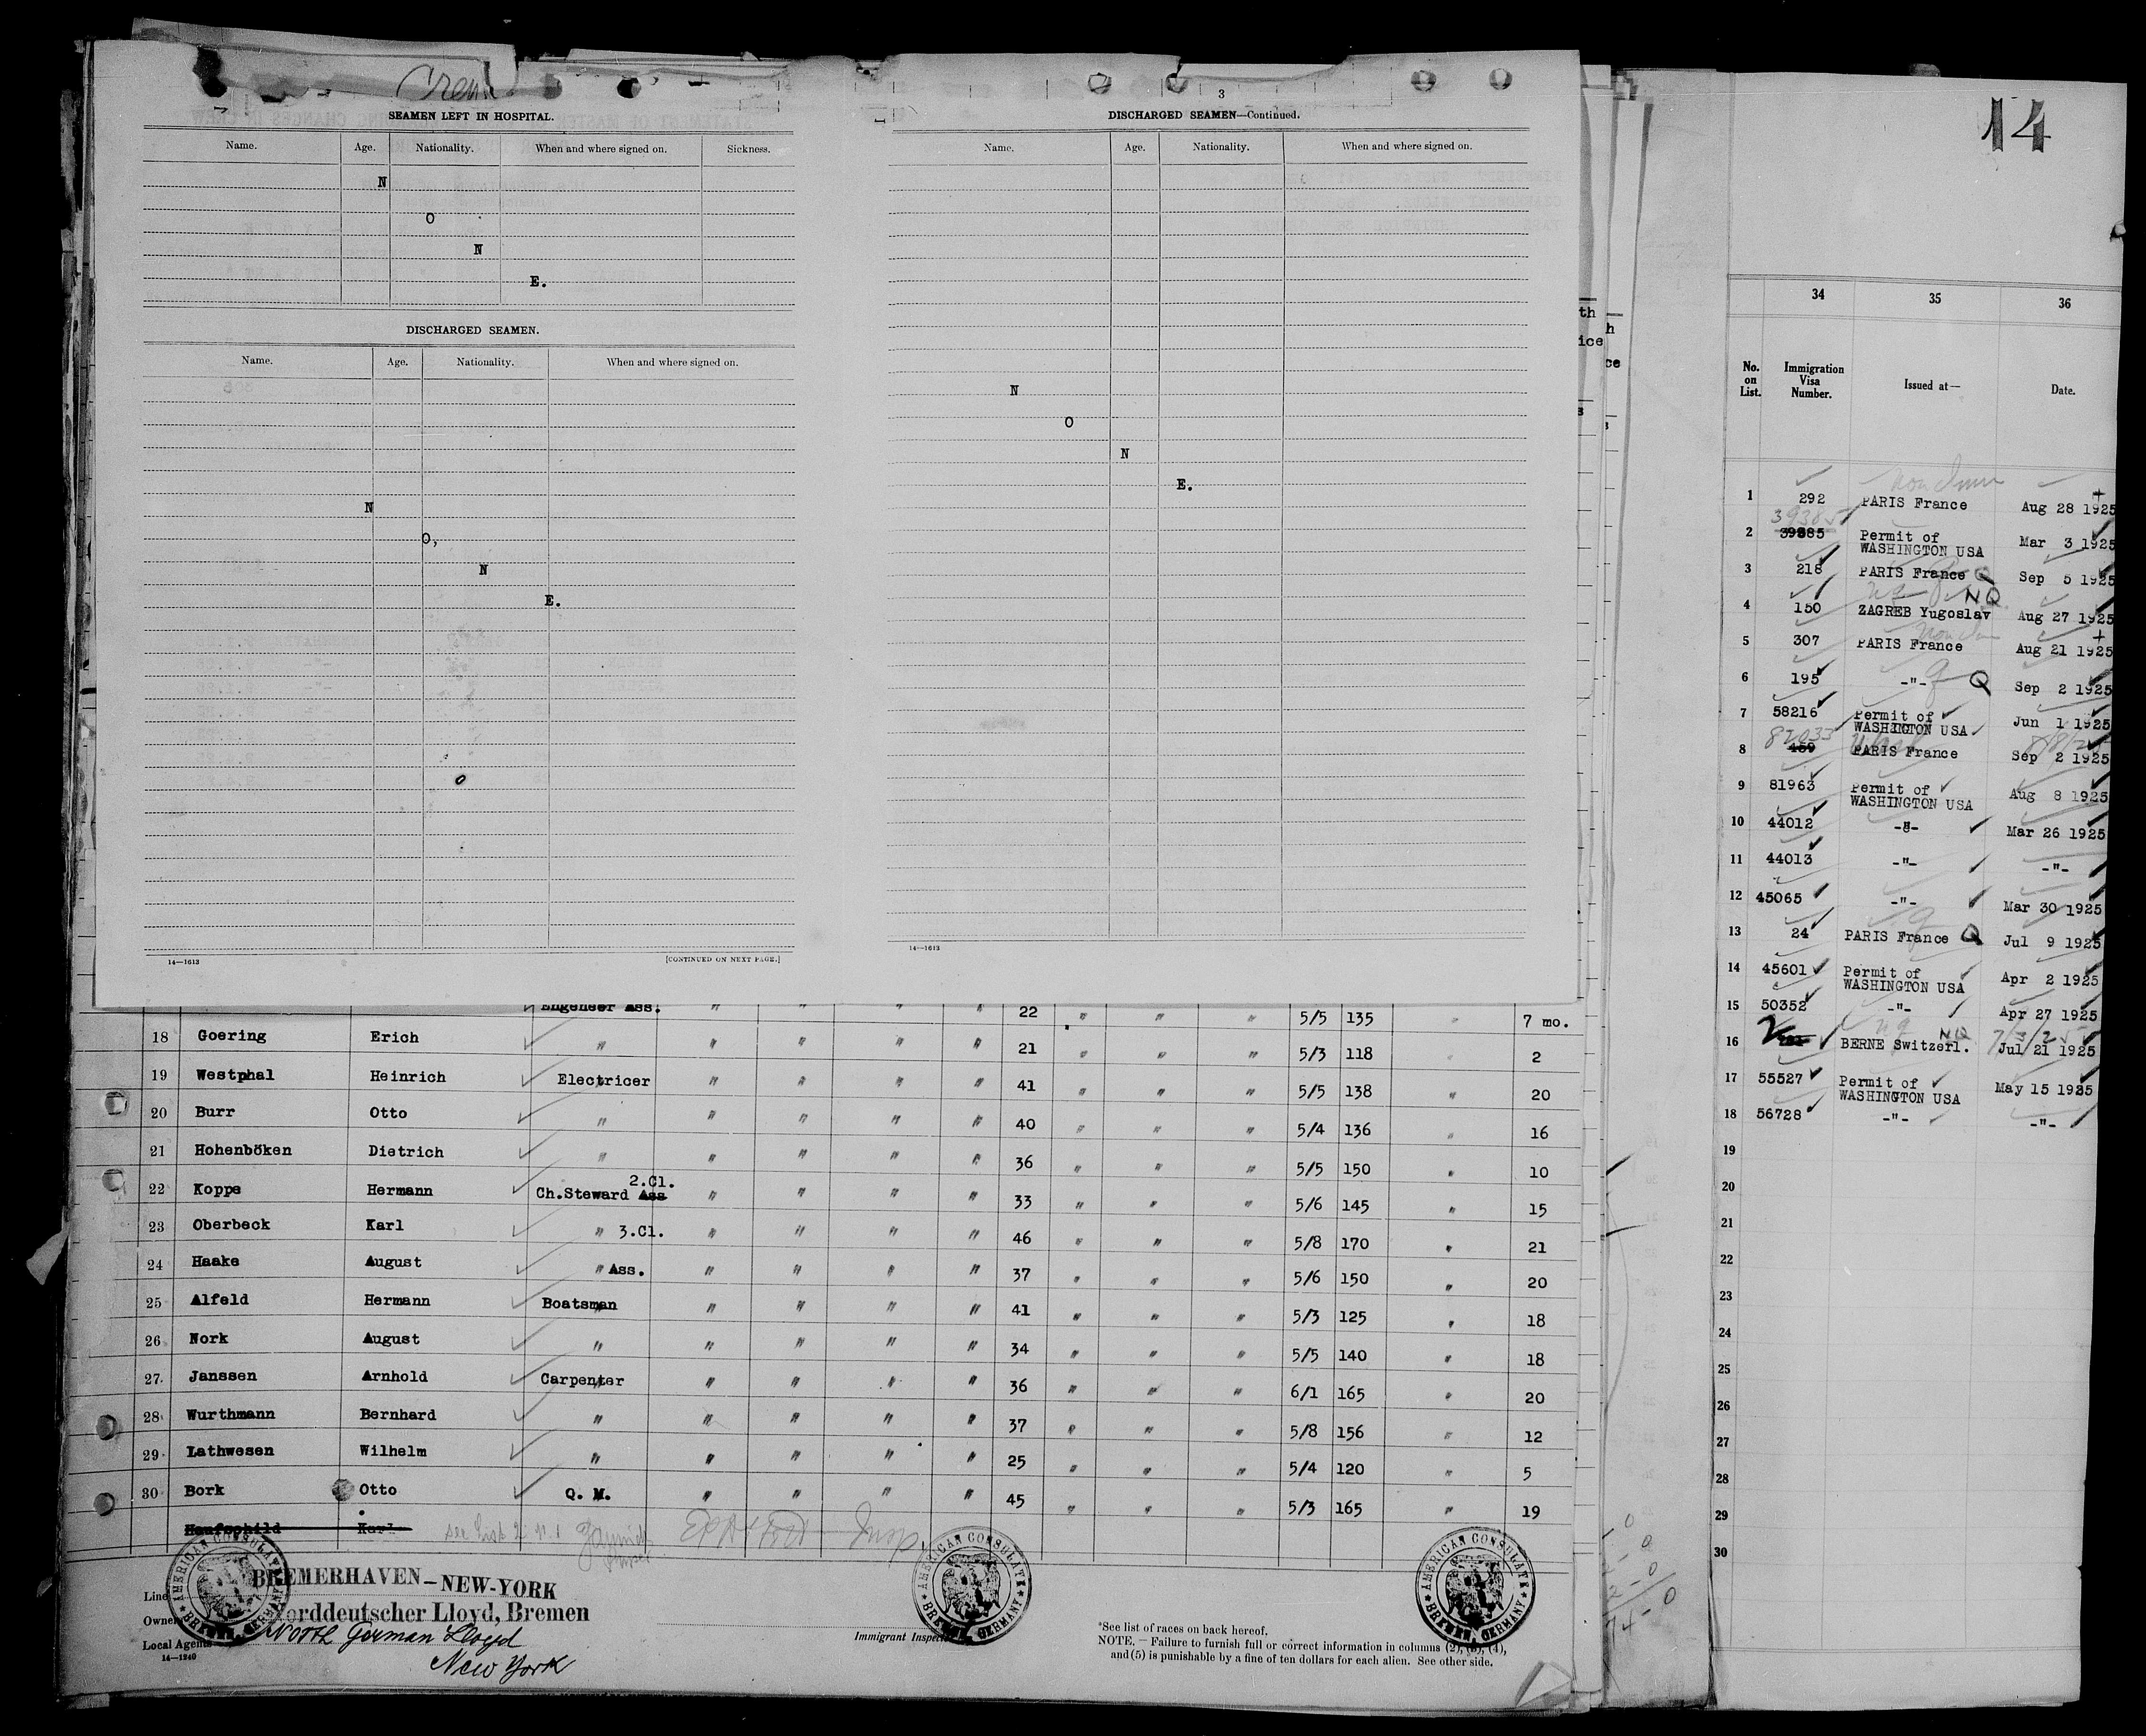 Crew
SEAMEN LEFT IN HOSPITAL.
Name. Age. Nationality. When and where signed on. Sickness.
N
O
N
E.
DISCHARGED SEAMEN.
Name. Age. Nationality. When and where signed on.
N
O,
N
E.
14—1613 [CONTINUED ON NEXT PAGE.]
3
DISCHARGED SEAMEN—Continued.
Name. Age. Nationality. When and where signed on.
N
O
N
E.
14—1613
Engeneer Ass. " " " " 22 " " " 5/5 135 " 7 mo.
18 Goering Erich " " " " " 21 " " " 5/3 118 " 2
19 Westphal Heinrich Electricer " " " " 41 " " " 5/5 138 " 20
20 Burr Otto " " " " " 40 " " " 5/4 136 " 16
21 Hohenböken Dietrich " " " " " 36 " " " 5/5 150 " 10
2.Cl.
22 Koppe Hermann Ch.Steward Ass " " " " 33 " " " 5/6 145 " 15
23 Oberbeck Karl " 3.Cl. " " " " 46 " " " 5/8 170 " 21
24 Haake August " Ass. " " " " 37 " " " 5/6 150 " 20
25 Alfeld Hermann Boatsman " " " " 41 " " " 5/3 125 " 18
26 Nork August " " " " " 34 " " " 5/5 140 " 18
27 Janssen Arnhold Carpenter " " " " 36 " " " 6/1 165 " 20
28 Wurthmann Bernhard " " " " " 37 " " " 5/8 156 " 12
29 Lathwesen Wilhelm " " " " " 25 " " " 5/4 120 " 5
30 Bork Otto Q. M. " " " " 45 " " " 5/3 165 " 19
Haufschild Karl
AMERICAN CONSULATE
BREMEN, GERMANY
AMERICAN CONSULATE
BREMEN, GERMANY
AMERICAN CONSULATE
BREMEN, GERMANY
Line BREMERHAVEN – NEW-YORK
Owner Norddeutscher Lloyd, Bremen
Local Agents North German Lloyd
New York
14—1240
Immigrant Inspector
*See list of races on back hereof.
NOTE. — Failure to furnish full or correct information in columns (2), (3), (4),
and (5) is punishable by a fine of ten dollars for each alien. See other side.
th
h
ice
ce
14
34 35 36
No. on List. Immigration Visa Number. Issued at— Date.
1 292 PARIS France Aug 28 1925
39385
2 39885 Permit of WASHINGTON USA Mar 3 1925
3 218 PARIS France Sep 5 1925
NQ
4 150 ZAGREB Yugoslav Aug 27 1925
5 307 PARIS France Aug 21 1925
6 195 -"- Q Sep 2 1925
7 58216 Permit of WASHINGTON USA Jun 1 1925
82033
8 459 PARIS France Sep 2 1925
9 81963 Permit of WASHINGTON USA Aug 8 1925
10 44012 -"- Mar 26 1925
11 44013 -"- -"-
12 45065 -"- Mar 30 1925
13 24 PARIS France Q Jul 9 1925
14 45601 Permit of WASHINGTON USA Apr 2 1925
15 50352 -"- Apr 27 1925
16 BERNE Switzerl. NQ Jul 21 1925
17 55527 Permit of WASHINGTON USA May 15 1925
18 56728 -"- -"-
19
20
21
22
23
24
25
26
27
28
29
30